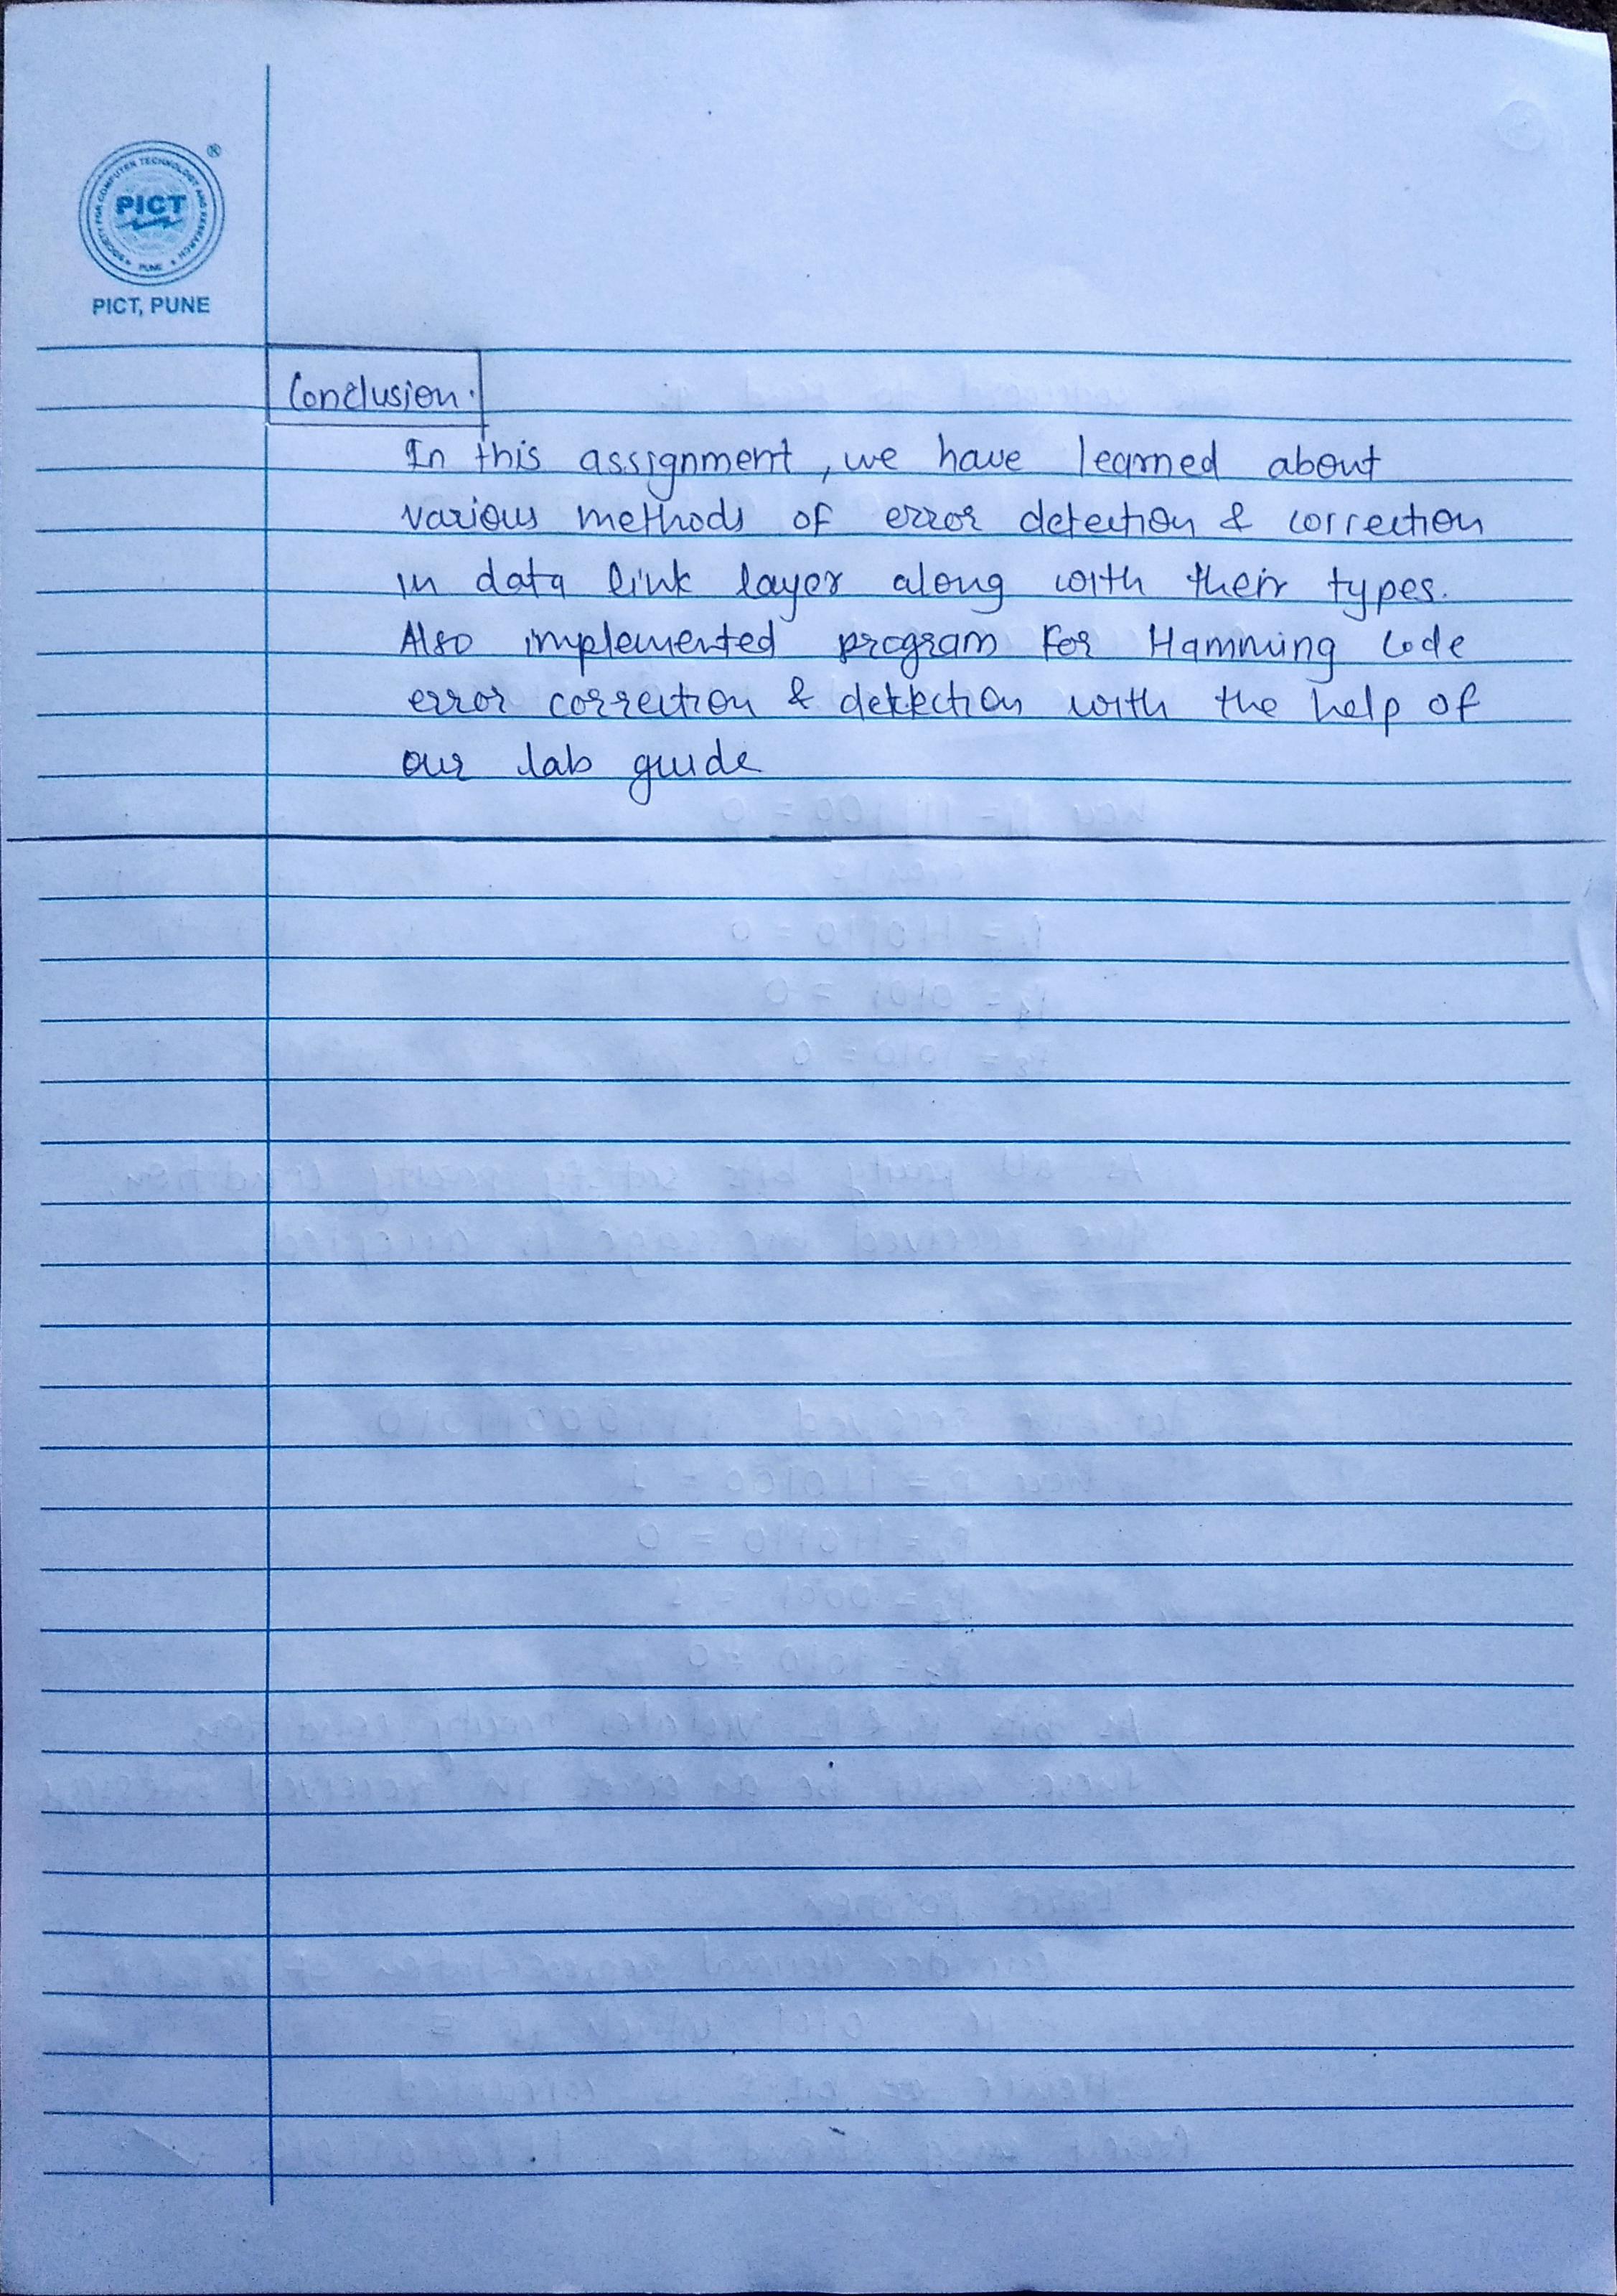 SOCIETY FOR COMPUTER TECHNOLOGY AND RESEARCH
PICT
PUNE
®
PICT, PUNE
Conclusion.
In this assignment, we have learned about
various methods of error detection & correction
in data link layer along with their types.
Also implemented program For Hamming Code
error correction & detection with the help of
our lab guide